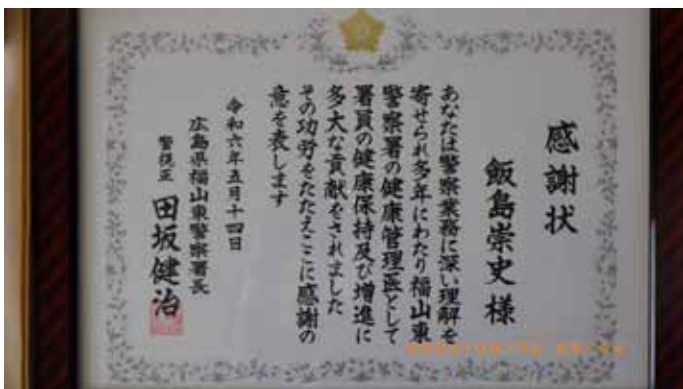 感謝状
飯島崇史 様
あなたは警察業務に深い理解を
寄せられ多年にわたり福山東
警察署の健康管理医として
署員の健康保持及び増進に
多大な貢献をされました
その功労をたたえここに感謝の
意を表します
令和六年五月十四日
広島県福山東警察署長
警視正 田坂健治